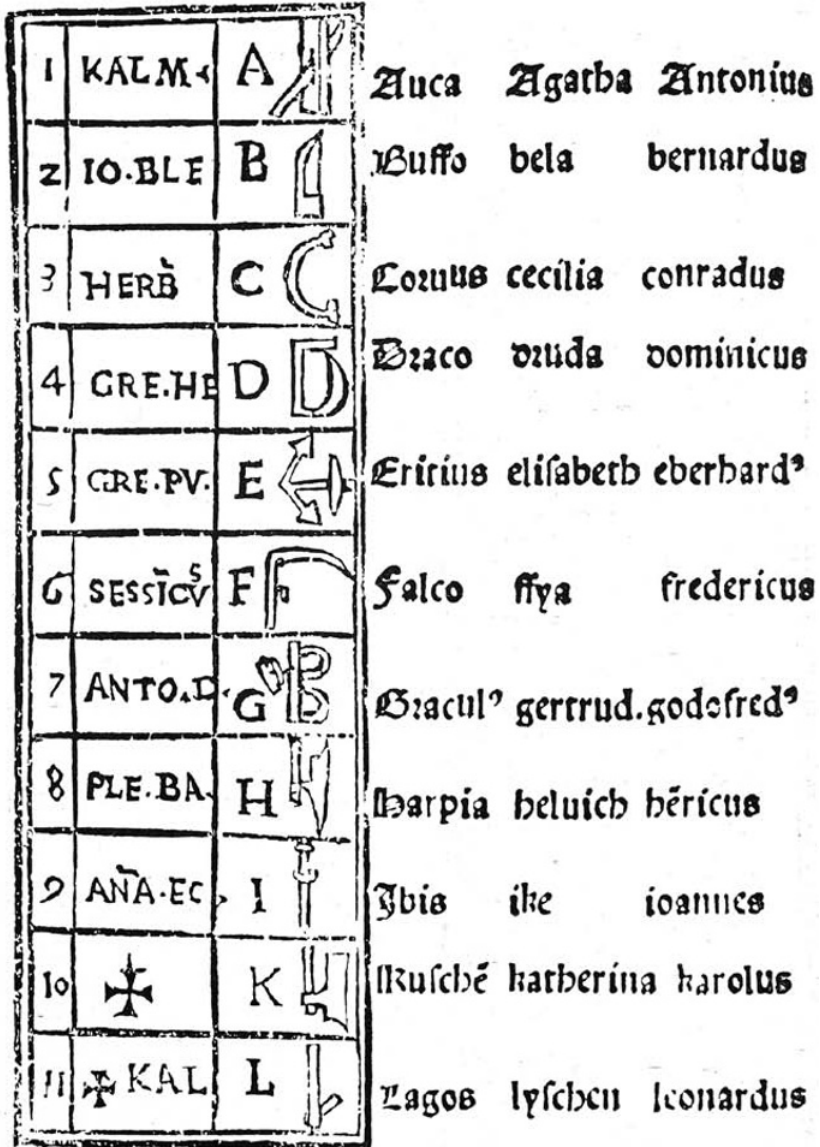 1 KALM A Auca Agatha Antonius
2 IO·BLE B Buffo bela bernardus
3 HERB̀ C Coruus cecilia conradus
4 GRE·HE D Draco druda dominicus
5 GRE·PV· E Ericius eliſabeth eberhardꝰ
6 SESSIC̄V F Falco ffya fredericus
7 ANTO·D G Graculꝰ gertrud. godefredꝰ
8 PLE·BA H Harpia heluich hēricus
9 AÑA·EC I Ibis ike ioannes
10 ✠ K Kuſchē katherina karolus
11 ✠ KAL L Lagos lyſchen leonardus